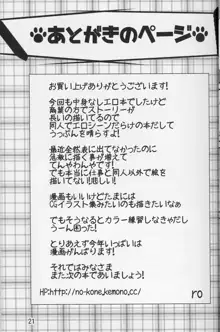 あとがきのページ
お買い上げありがとうございます!
今回も中身なしエロ本でしたけど
商業の方でストーリーが
長いの描いてるので
同人でエロシーンだらけの本だして
うっぷんを晴らすよ!
最近全然表に出てなかったのに
活動に描く事が増えて
てんやわんやです。
でも本当に仕事と同人以外で絵を
描いてない!ので悲しい!
漫画もいいけどたまには
CGイラスト集みたいのも出したいかな
でもそうなるとカラー練習しなきゃだし
うーん困った!
とりあえず今年いっぱいは
漫画がんばります!
それではみなさま
また次の本であいましょう!
HP:http://no-kone.kemono.cc/
ro
21